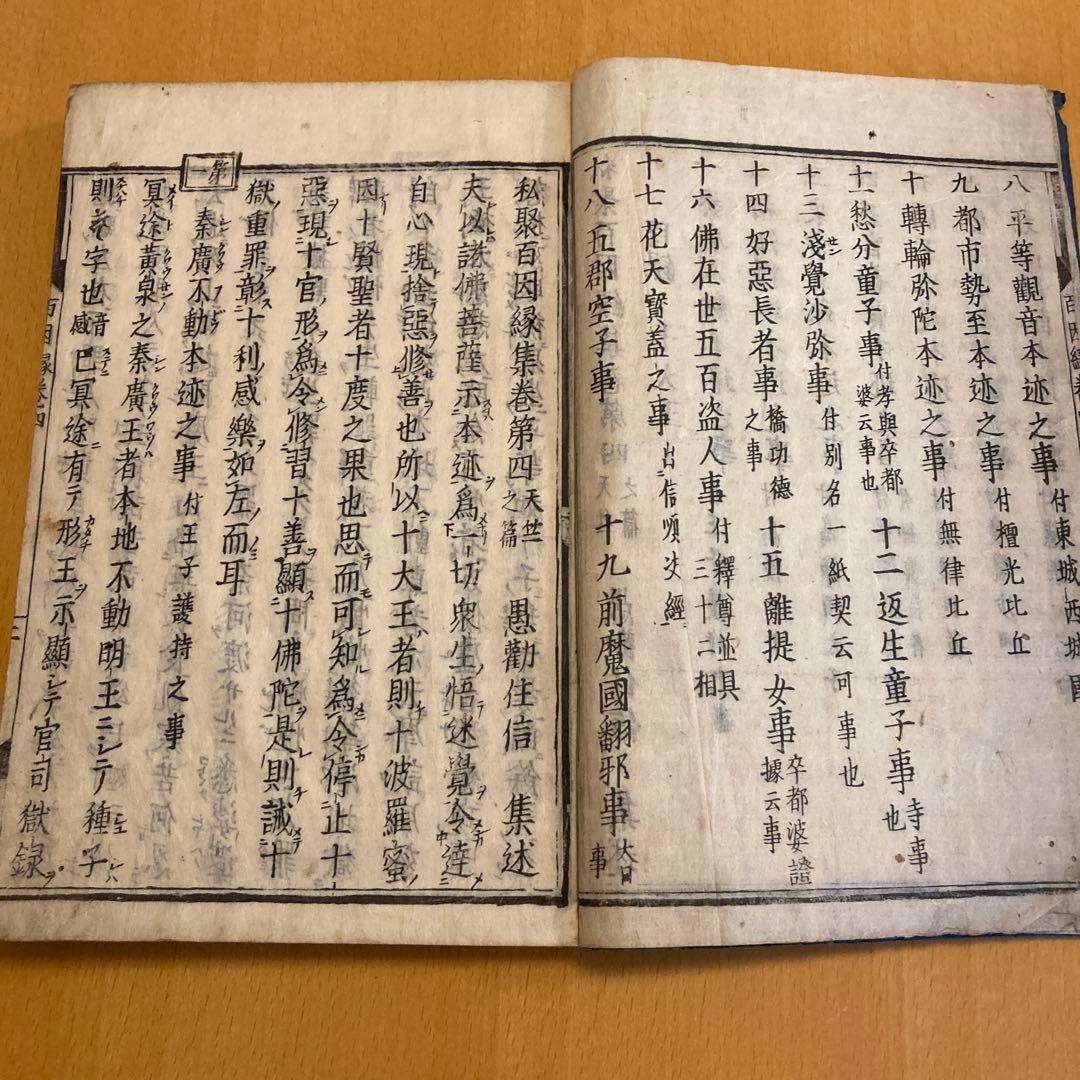 八 平等觀音本迹之事 付東城西城國
九 都市勢至本迹之事 付檀光比丘
十 轉輪弥陀本迹之事 付無律比丘
十一 愁分童子事 付孝與卒都婆云事也 十二 返生童子事 寺事也
十三 淺覺沙弥事 付別名一紙契云可事也
十四 好惡長者事 橋功德之事 十五 離提女事 卒都婆證據云事
十六 佛在世五百盗人事 付釋尊並具三十二相
十七 花天寶蓋之事 出信順決經
十八 五郡空子事 十九 前魔國翻邪事 大日事
百因縁
私聚百因縁集卷第四 天竺之篇 愚勸住信 集述
夫以諸佛菩薩示本迹爲一切衆生悟迷覺令達
自心現捨惡修善也所以十大王者則十波羅蜜
因十賢聖者十度之果也思而可知爲令停止十
惡現十官形爲令修習十善顯十佛陀是則誡十
獄重罪彰十利感樂如左而耳
第一
秦廣不動本迹之事 付王子護持之事
冥途黄泉之秦廣王者本地不動明王ニシテ種子
則 字也 音感 巳冥途有テ形王示顯シテ官司獄録
百因縁卷四